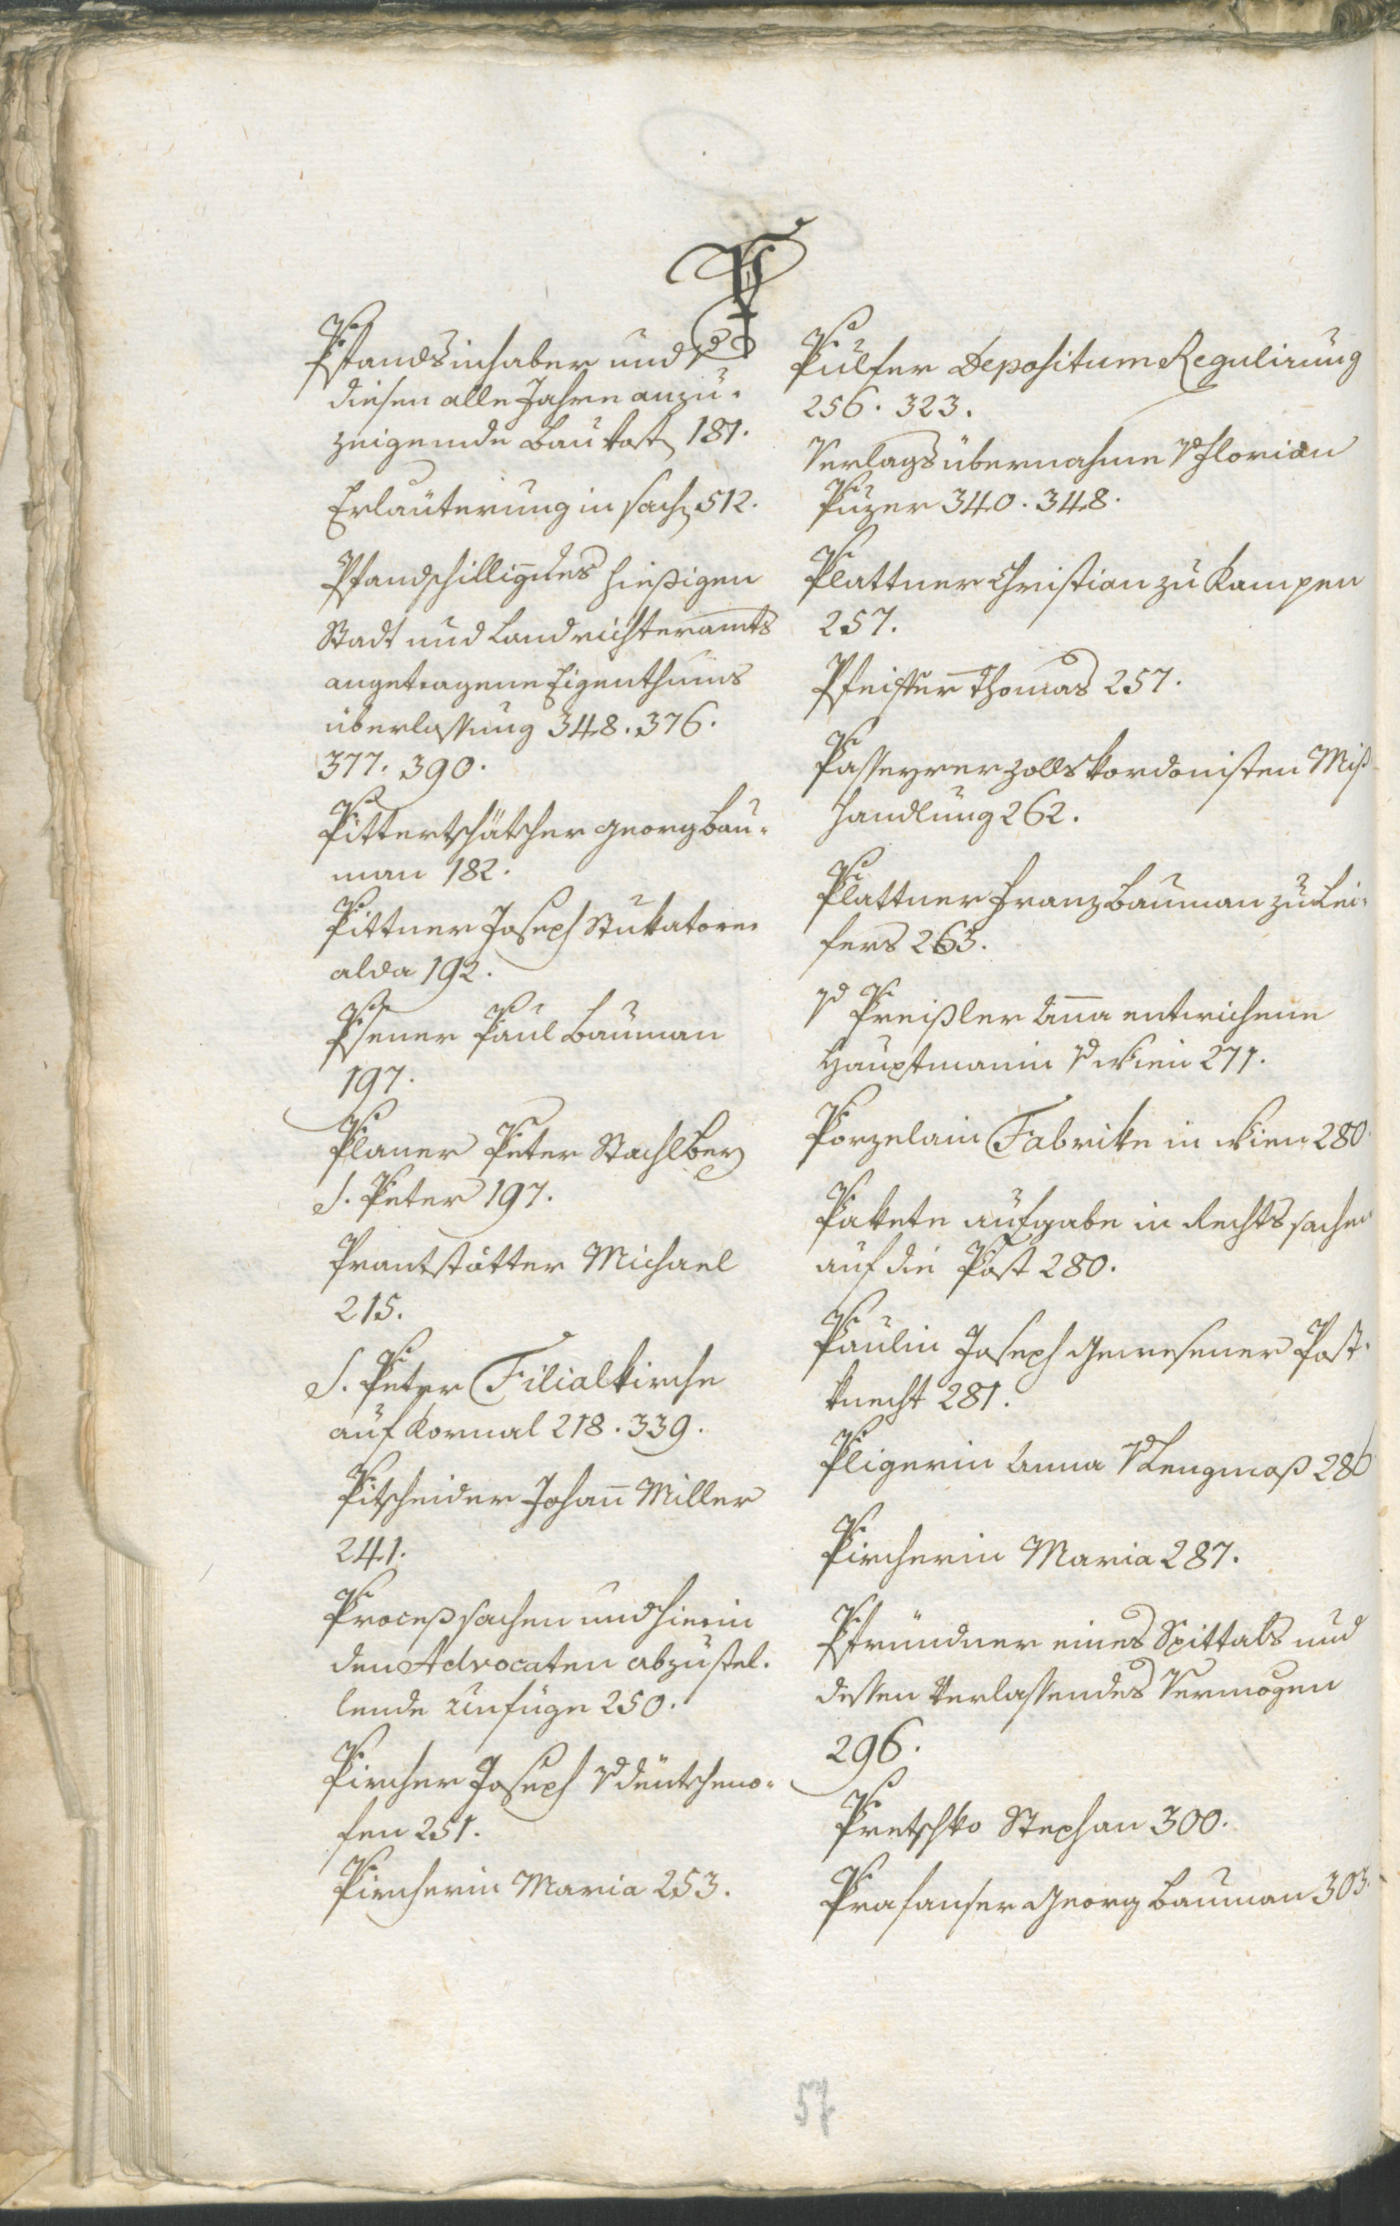 P
Pfandsinhaber und v
diesen alle Jahre anzu-
zeigende Baukost. 181.
Erläuterung in sach. 512.
Pfandschilling des hießigen
Stadt und Landrichteramts
angetragene Eigenthums
überlassung 348. 376.
377. 390.
Pittertschätscher Georg Bau-
man 182.
Pittner Joseph Stukatorer
alda 192.
Psener Paul Bauman
197.
Planer Peter Stachlberg
S. Peter 197.
Prantstätter Michael
215.
S. Peter Filialkirche
auf Kornial 218. 339.
Pitscheider Johann Miller
241.
Proceßsachen und hierin
den Advocaten abzustel-
lende Unfüge 250.
Pircher Joseph v deutscheno-
fen 251.
Pircherin Maria 253.
Pulfer Depositum Regulirung
256. 323.
Verlagsübernahme v Florian
Puzer 340. 348.
Plattner Christian zu Kampen
257.
Pfeifter Thomas 257.
Passeyrer Zolls kordonisten Miß-
handlung 262.
Plattner Franz Bauman zu Lei-
fers 263.
v Preißler Anna entwichene
Hauptmanin v Wien 271.
Porzelain Fabrike in Wien 280.
Pakete aufgabe in Rechtssachen
auf die Post 280.
Paulin Joseph gewesener Post-
knecht 281.
Pligerin Anna v Lengmoß 286
Pircherin Maria 287.
Pfründner eines Spittals und
dessen verlassendes Vermögen
296.
Pretschko Stephan 300.
Prafanser Georg Bauman 303.
57